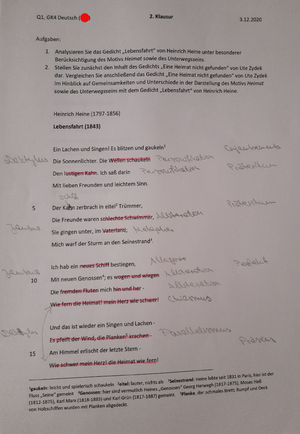 Q1, GK4 Deutsch
2. Klausur
3.12.2020
Aufgaben:
1. Analysieren Sie das Gedicht „Lebensfahrt" von Heinrich Heine unter besonderer
Berücksichtigung des Motivs Heimat sowie des Unterwegsseins.
2. Stellen Sie zunächst den Inhalt des Gedichts „Eine Heimat nicht gefunden" von Ute Zydek
dar. Vergleichen Sie anschließend das Gedicht „Eine Heimat nicht gefunden" von Ute Zydek
im Hinblick auf Gemeinsamkeiten und Unterschiede in der Darstellung des Motivs Heimat
sowie des Unterwegsseins mit dem Gedicht „Lebensfahrt" von Heinrich Heine.
Heinrich Heine (1797-1856)
Lebensfahrt (1843)
Ein Lachen und Singen! Es blitzen und gaukeln¹
Daktylus Die Sonnenlichter. Die Wellen schaukeln Personifikation
Den lustigen Kahn. Ich saß darin Personifikation Präteritum
Mit lieben Freunden und leichtem Sinn.
5 Der Kahn zerbrach in eitel² Trümmer, Präteritum
Die Freunde waren schlechte Schwimmer, Alliteration
Jambus Sie gingen unter, im Vaterland; Metapher
Mich warf der Sturm an den Seinestrand³.
Allegorie
Jambus Ich hab ein neues Schiff bestiegen, Perfekt
10 Mit neuen Genossen⁴; es wogen und wiegen Alliteration
Die fremden Fluten mich hin und her - Alliteration
Wie fern die Heimat! mein Herz wie schwer! Chiasmus
Und das ist wieder ein Singen und Lachen -
Es pfeift der Wind, die Planken⁵ krachen - Parallelismus
15 Am Himmel erlischt der letzte Stern - Präsens
Wie schwer mein Herz! die Heimat wie fern!
¹gaukeln: leicht und spielerisch schaukeln ²eitel: lauter, nichts als ³Seinestrand: Heine lebte seit 1831 in Paris, hier ist der
Fluss „Seine" gemeint ⁴Genossen: hier sind vermutlich Heines „Genossen" Georg Herwegh (1817-1875), Moses Heß
(1812-1875), Karl Marx (1818-1883) und Karl Grün (1817-1887) gemeint ⁵Planke, die: schmales Brett; Rumpf und Deck
von Holzschiffen wurden mit Planken abgedeckt.